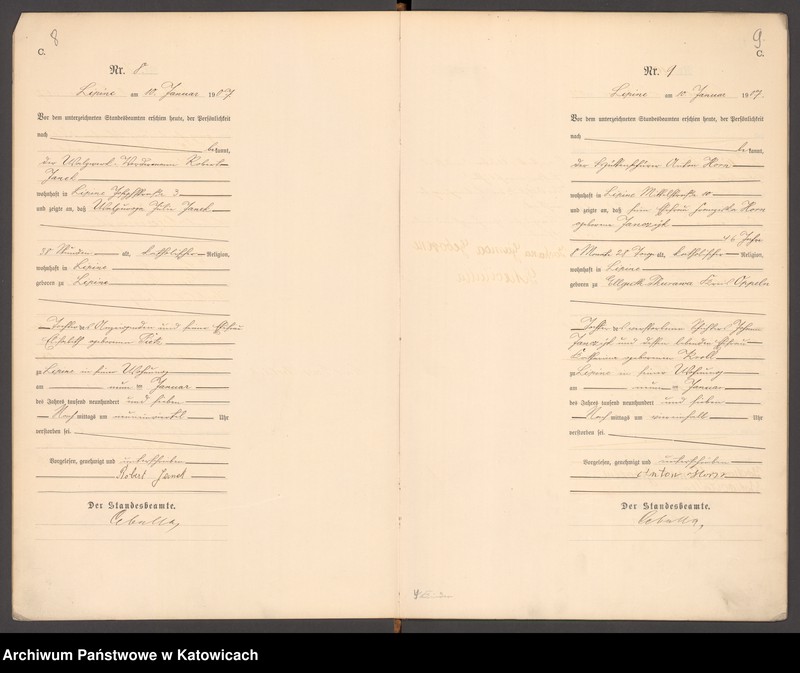 8
C.
Nr. 8
Lipine am 10. Januar 1907
Vor dem unterzeichneten Standesbeamten erschien heute, der Persönlichkeit
nach
bekannt,
der Robert
Janek
wohnhaft in Lipine
und zeigte an, daß Julie Janek
38 Stunden alt, katholischer Religion,
wohnhaft in Lipine
geboren zu Lipine
Tochter des Anzeigenden und seiner Ehefrau
Elisabeth geborenen
zu Lipine in seiner Wohnung
am neun ten Januar
des Jahres tausend neunhundert und sieben
Nach mittags um Uhr
verstorben sei.
Vorgelesen, genehmigt und unterschrieben
Robert Janek
Der Standesbeamte.
9
C.
Nr. 9
Lipine am 10. Januar 1907.
Vor dem unterzeichneten Standesbeamten erschien heute, der Persönlichkeit
nach
bekannt,
der Anton Horn
wohnhaft in Lipine Mittelstraße 10
und zeigte an, daß seine Ehefrau Franziska Horn
geborene
46 Jahre
8 Monate 28 Tage alt, katholischer Religion,
wohnhaft in Lipine
geboren zu Ellguth Thurawa Kreis Oppeln
Tochter des verstorbenen
und dessen lebenden Ehefrau
Katharina geborenen
zu Lipine in seiner Wohnung
am neun ten Januar
des Jahres tausend neunhundert und sieben
Nach mittags um Uhr
verstorben sei.
Vorgelesen, genehmigt und unterschrieben
Anton Horn
Der Standesbeamte.
Archiwum Państwowe w Katowicach